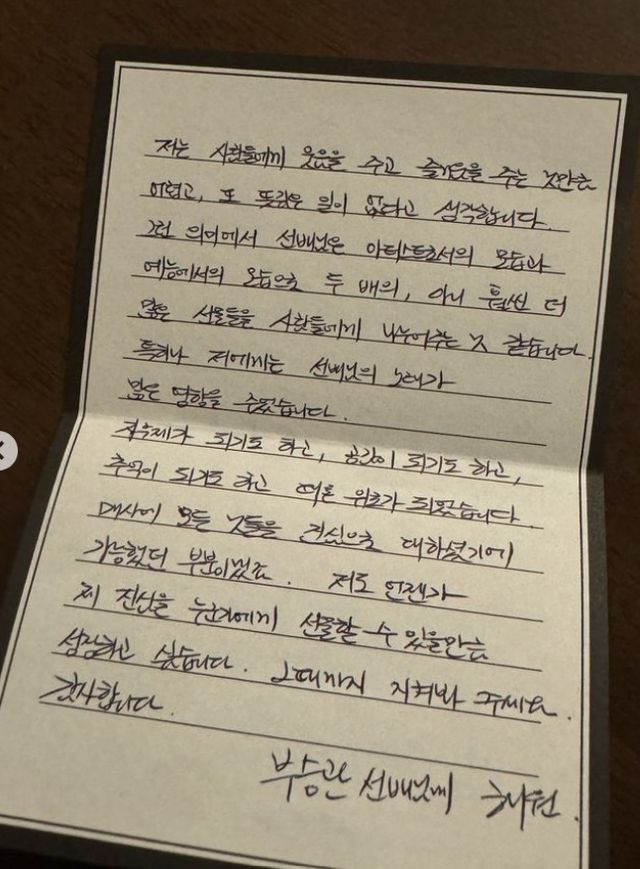 저는 사람들에게 웃음을 주고 즐거움을 주는 것만큼
어렵고, 또 뜻깊은 일이 없다고 생각합니다.
그런 의미에서 선배님은 아티스트로서의 모습과
예능에서의 모습으로 두 배의, 아니 훨씬 더
많은 선물들을 사람들에게 나누어주는 것 같습니다.
특히나 저에게는 선배님의 노래가
많은 영향을 주었습니다.
자우제가 되기도 하고, 공감이 되기도 하고,
추억이 되기도 하고 때론 위로가 되었습니다.
매사에 모든 것들을 진심으로 대하셨기에
가능했던 부분이었죠. 저도 언젠가
제 진심을 누군가에게 선물할 수 있을만큼
성장하고 싶습니다. 그때까지 지켜봐 주세요.
감사합니다.
부승관 선배님께